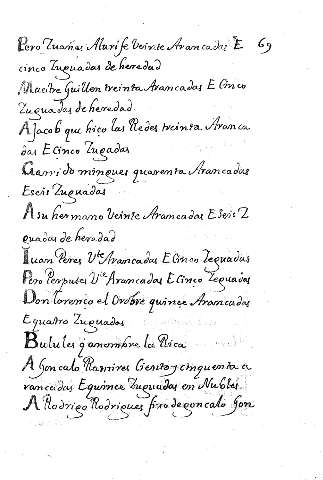 Pero Zuañas Alarife Veinte Arancadas E 69
cinco Zuguadas de heredad
Maestre Guillen treinta Arancadas E Cinco
Zuguadas de heredad
A Jacob que hiço las Redes treinta Aranca
das E Cinco Zugadas
Garrido mingues quarenta Arancadas
E seis Zuguadas
A su hermano Veinte Arancadas E seis Z
guadas de heredad
Iuan Peres Vte Arancadas E Cinco Zeguadas
Pero Vte Arancadas E Cinco Zeguadas
Don lorenco el quince Arancadas
E quatro Zuguadas
Bulules q a nombre la Rica
A Goncalo Ramires Ciento y cinquenta a
rancadas E quince Zuguadas en Nubles
A Rodrigo Rodrigues fixo de goncalo Gon